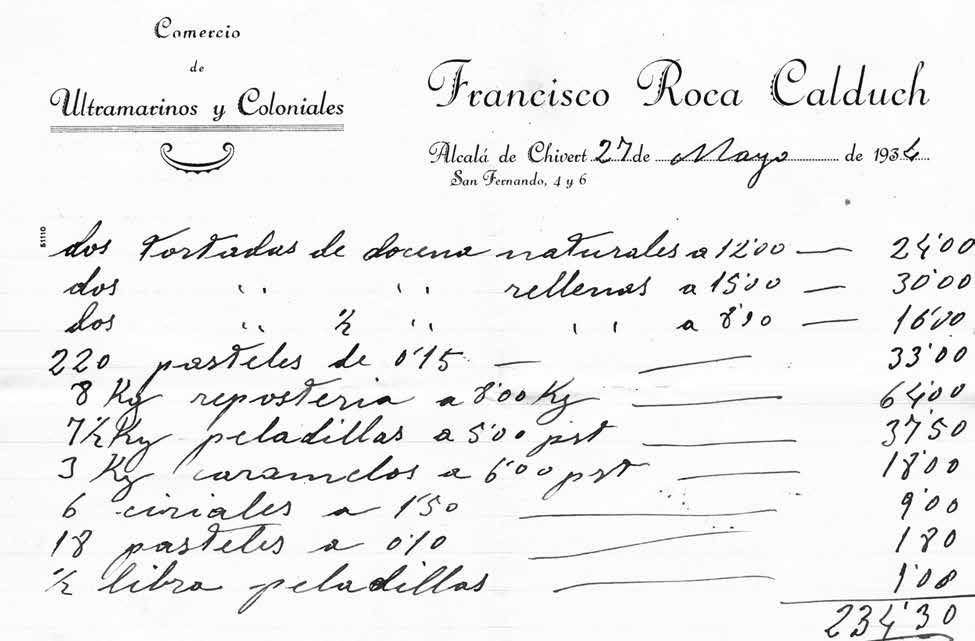 Comercio
de
Ultramarinos y Coloniales
Francisco Roca Calduch
Alcalá de Chivert 27 de Mayo de 1934
San Fernando, 4 y 6
51110
dos tortadas de docena naturales a 12'00 — 24'00
dos " " rellenas a 15'00 — 30'00
dos " ½ " " " a — 16'00
220 pasteles de 0'15 — — 33'00
8 Kg reposteria a 8'00 Kg — 64'00
7½ Kg peladillas a 5'00 pst — 37'50
3 Kg caramelos a 6'00 pst — 18'00
6 ciriales a 1'50 — 9'00
18 pasteles a 0'10 — 1'80
½ libra peladillas — 1'00
234'30